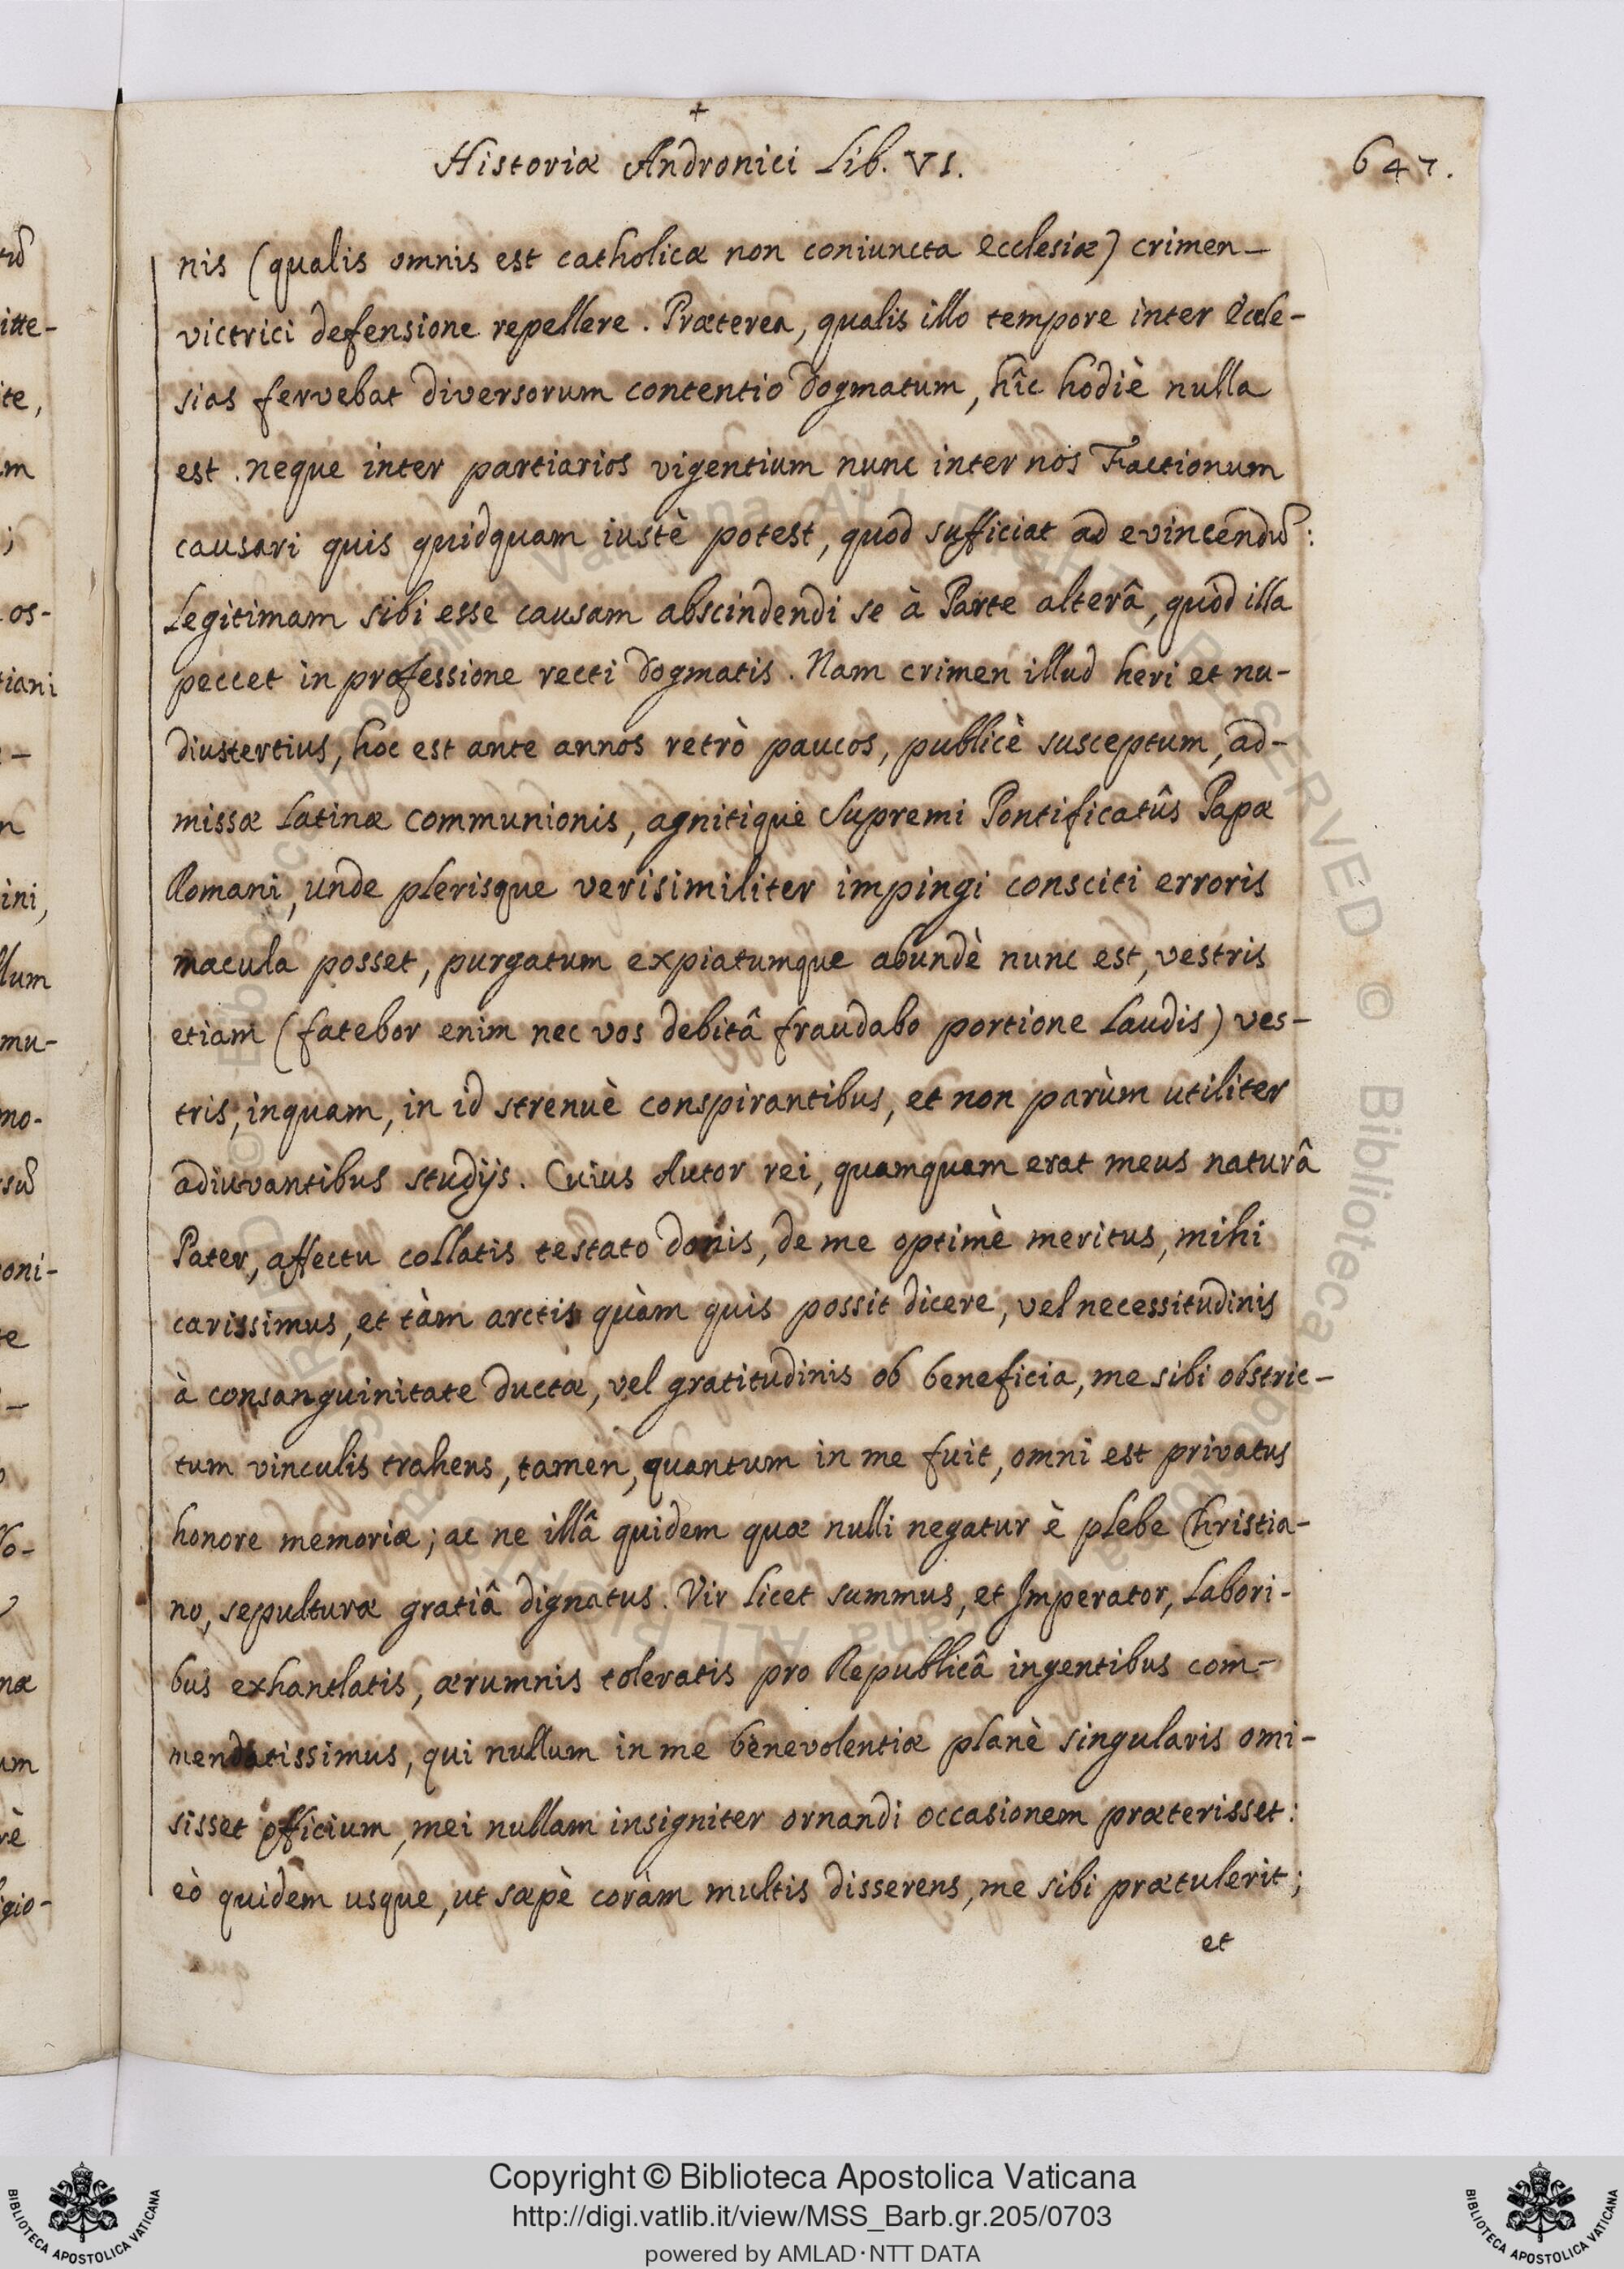 +
Historiæ Andronici Lib. VI.
647.
nis (qualis omnis est catholicæ non coniuncta Ecclesiæ) crimen
victrici defensione repellere. Præterea, qualis illo tempore inter Eccle-
sias fervebat diversorum contentio dogmatum, hîc hodiè nulla
est. neque inter partiarios vigentium nunc inter nos Factionum
causari quis quidquam iustè potest, quod sufficiat ad evincendũ:
Legitimam sibi esse causam abscindendi se à Parte alterâ, quòd illa
peccet in professione recti dogmatis. Nam crimen illud heri et nu-
diustertius, hoc est ante annos retrò paucos, publicè susceptum, ad-
missæ Latinæ communionis, agnitique Supremi Pontificatûs Papæ
Romani, unde plerisque verisimiliter impingi consciti erroris
macula posset, purgatum expiatumque abundè nunc est, vestris
etiam (fatebor enim nec vos debitâ fraudabo portione Laudis) ves-
tris, inquam, in id strenuè conspirantibus, et non parùm utiliter
adiuvantibus studijs. Cuius Autor rei, quamquam erat meus naturâ
Pater, affectu collatis testato donis, de me optimè meritus, mihi
carissimus, et tàm arctis quàm quis possit dicere, vel necessitudinis
à consanguinitate ductæ, vel gratitudinis ob beneficia, me sibi obstric-
tum vinculis trahens, tamen, quantum in me fuit, omni est privatus
honore memoriæ; ac ne illâ quidem quæ nulli negatur è plebe Christia-
no, sepulturæ gratiâ dignatus. Vir licet summus, et Imperator, Labori-
bus exhantlatis, ærumnis toleratis pro Republicâ ingentibus com-
mendatissimus, qui nullum in me benevolentiæ planè singularis omi-
sisset officium, mei nullam insigniter ornandi occasionem præterisset:
eò quidem usque, ut sæpè coràm multis disserens, me sibi prætulerit;
et
Copyright © Biblioteca Apostolica Vaticana
http://digi.vatlib.it/view/MSS_Barb.gr.205/0703
powered by AMLAD·NTT DATA
BIBLIOTECA APOSTOLICA VATICANA
BIBLIOTECA APOSTOLICA VATICANA